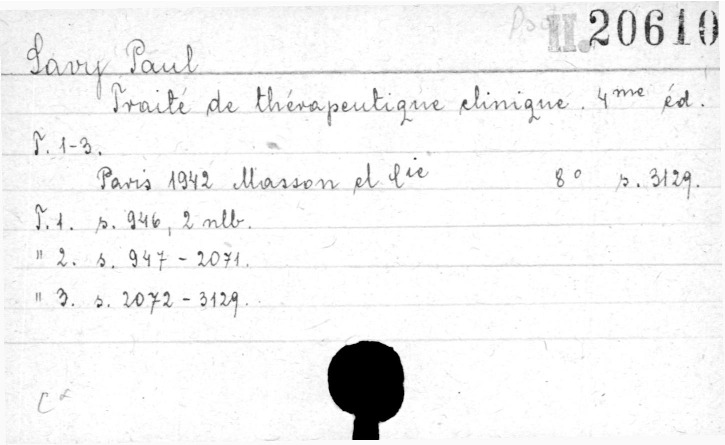 II. 20610
Savy Paul
Traité de thérapeutique clinique. 4me éd.
T. 1-3.
Paris 1942 Masson et Cie 8° s. 3129.
T. 1. s. 946, 2 nlb.
" 2. s. 947 - 2071.
" 3. s. 2072 - 3129.